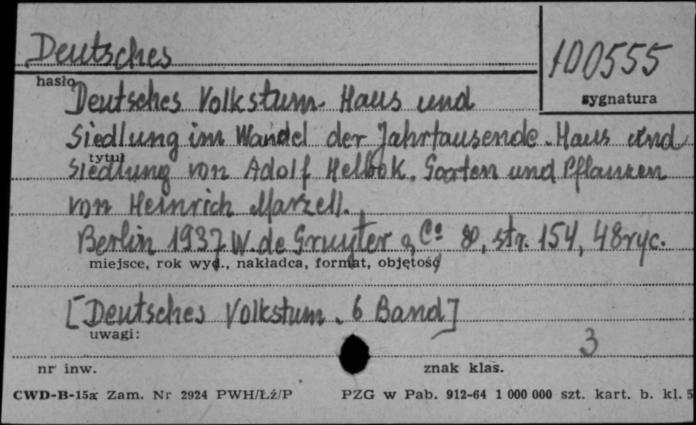 Deutsches
100555
hasło
sygnatura
Deutsches Volkstum. Haus und
Siedlung im Wandel der Jahrtausende. Haus und
tytuł
Siedlung von Adolf Helbok. Garten und Pflanzen
von Heinrich Marzell.
Berlin 1937. W. de Gruyter & Co 8o, str. 154, 48 ryc.
miejsce, rok wyd., nakładca, format, objętość
[Deutsches Volkstum. 6 Band]
uwagi:
3
nr inw.
znak klas.
CWD-B-15a Zam. Nr 2924 PWH/Łź/P
PZG w Pab. 912-64 1 000 000 szt. kart. b. kl. 5